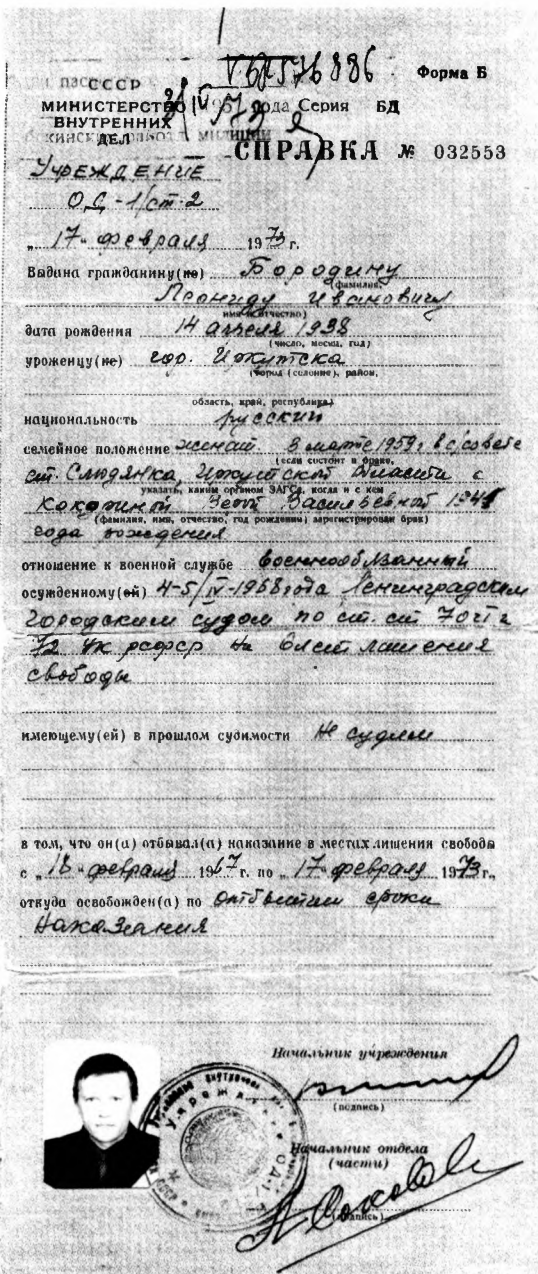 V БР 576886
Форма Б
СССР
МИНИСТЕРСТВО
ВНУТРЕННИХ
ДЕЛ
года Серия БД
СПРАВКА № 032553
Учреждение
ОД-1/ст-2
„17“ февраля 1973 г.
Выдана гражданину(ке) Бородину
(фамилия,
Леониду Ивановичу
имя и отчество)
дата рождения 14 апреля 1938
(число, месяц, год)
уроженцу(ке) гор. Иркутска
(город (селение), район,
область, край, республика)
национальность русский
семейное положение женат В марте 1959 г в с/совете
(если состоит в браке,
ст. Слюдянка, Иркутской области с
указать, каким органом ЗАГСа, когда и с кем
Зоей Васильевной
(фамилия, имя, отчество, год рождения) зарегистрирован брак)
года рождения
отношение к военной службе Военнообязанный
осужденному(ой) 4-5/IV-1968 года Ленинградским
Городским судом по ст. ст 70 ч I и
72 УК РСФСР на 6 лет лишения
свободы
имеющему(ей) в прошлом судимости Не судим
в том, что он(а) отбывал(а) наказание в местах лишения свободы
с „18“ февраля 1967 г. по „17“ февраля 1973 г.,
откуда освобожден(а) по отбытии срока
Наказания
Начальник учреждения
(подпись)
Начальник отдела
(части)
(подпись)